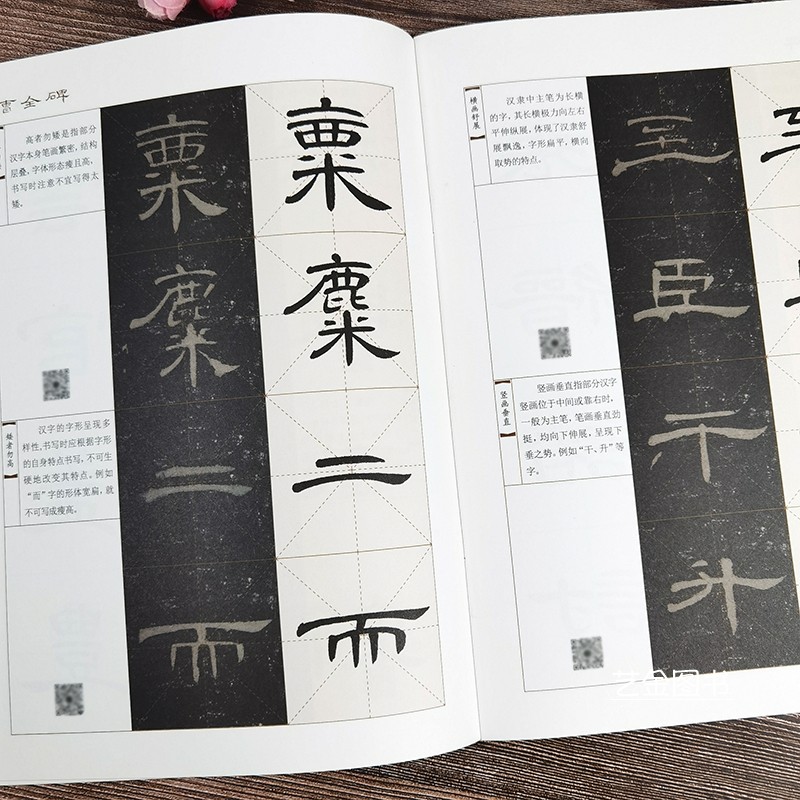 曹全碑
高者勿矮是指部分
汉字本身笔画繁密，结构
层叠，字体形态瘦且高，
书写时注意不宜写得太
矮。
麋 麋
矮者勿高
汉字的字形呈现多
样性，书写时应根据字形
的自身特点书写，不可生
硬地改变其特点。例如
“而”字的形体宽扁，就
不可写成瘦高。
二 二
而 而
横画舒展
汉隶中主笔为长横
的字，其长横极力向左右
平伸纵展，体现了汉隶舒
展飘逸，字形扁平，横向
取势的特点。
王
臣
竖画垂直
竖画垂直指部分汉字
竖画位于中间或靠右时，
一般为主笔，笔画垂直劲
挺，均向下伸展，呈现下
垂之势。例如“干、升”等
字。
干
升
艺金图书